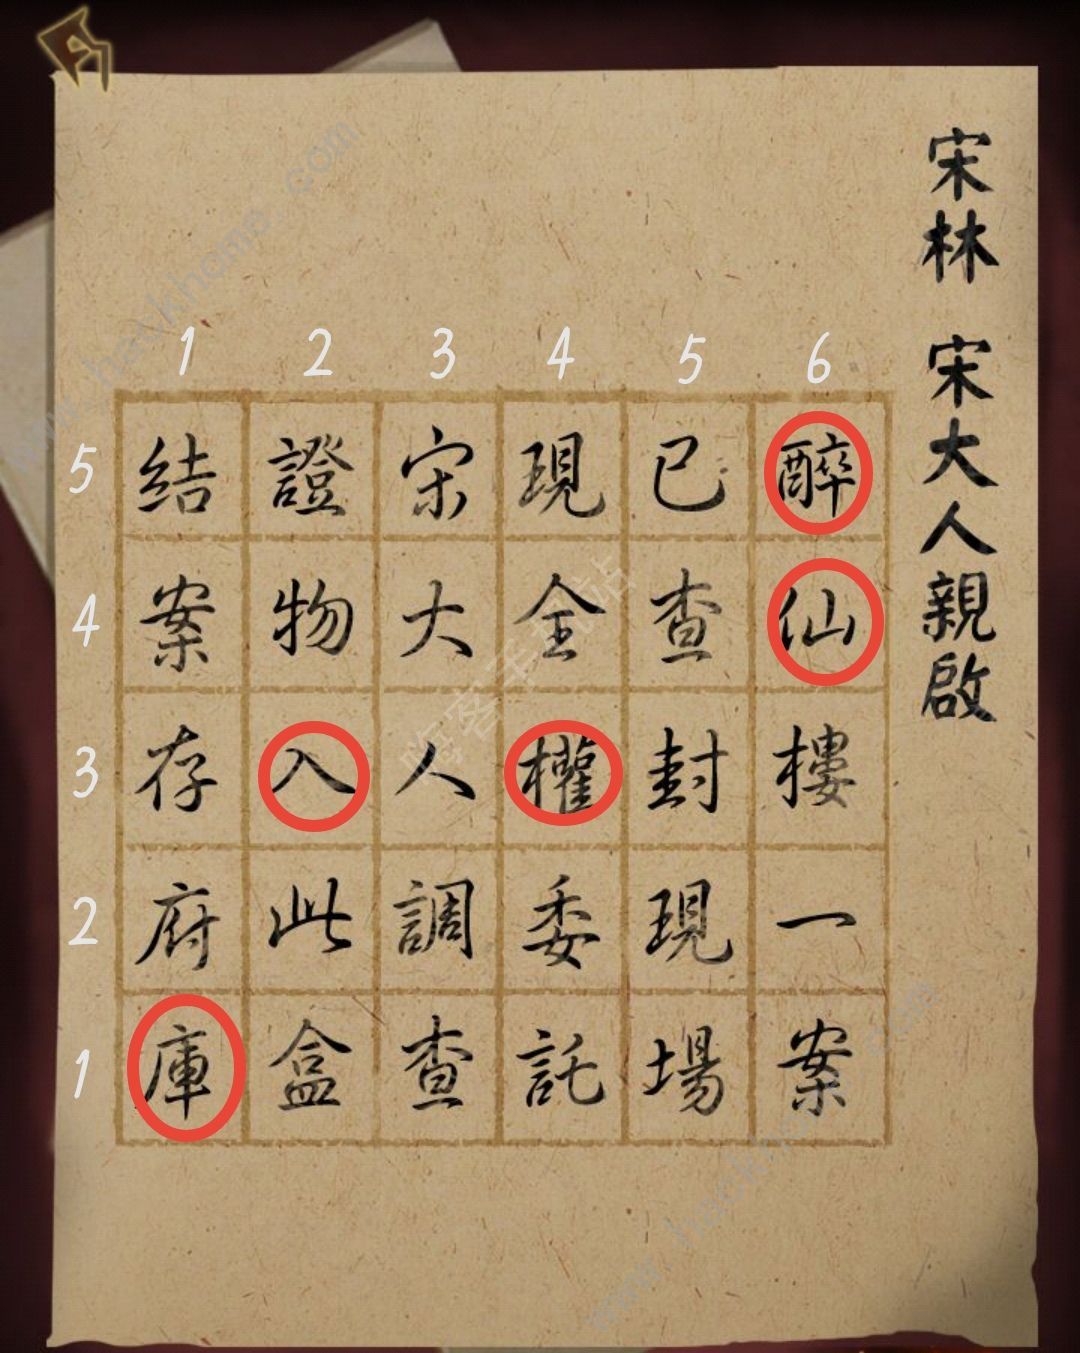 宋林 宋大人親啟
1 2 3 4 5 6
5 4 3 2 1
醉仙樓一案
已查封現場
現全權委託
宋大人調查
證物入此盒
結案存府庫